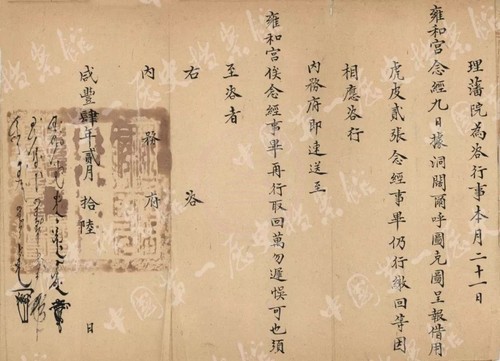 理藩院為咨行事本月二十一日
雍和宮念經九日據洞闊爾呼圖克圖呈報借用
虎皮貳張念經事畢仍行繳回等因
相應咨行
內務府即速送至
雍和宮俟念經事畢再行取回萬勿遲悞可也須
至咨者
右咨
內務府
咸豐肆年貳月拾陸日
中國第一歷史檔案館